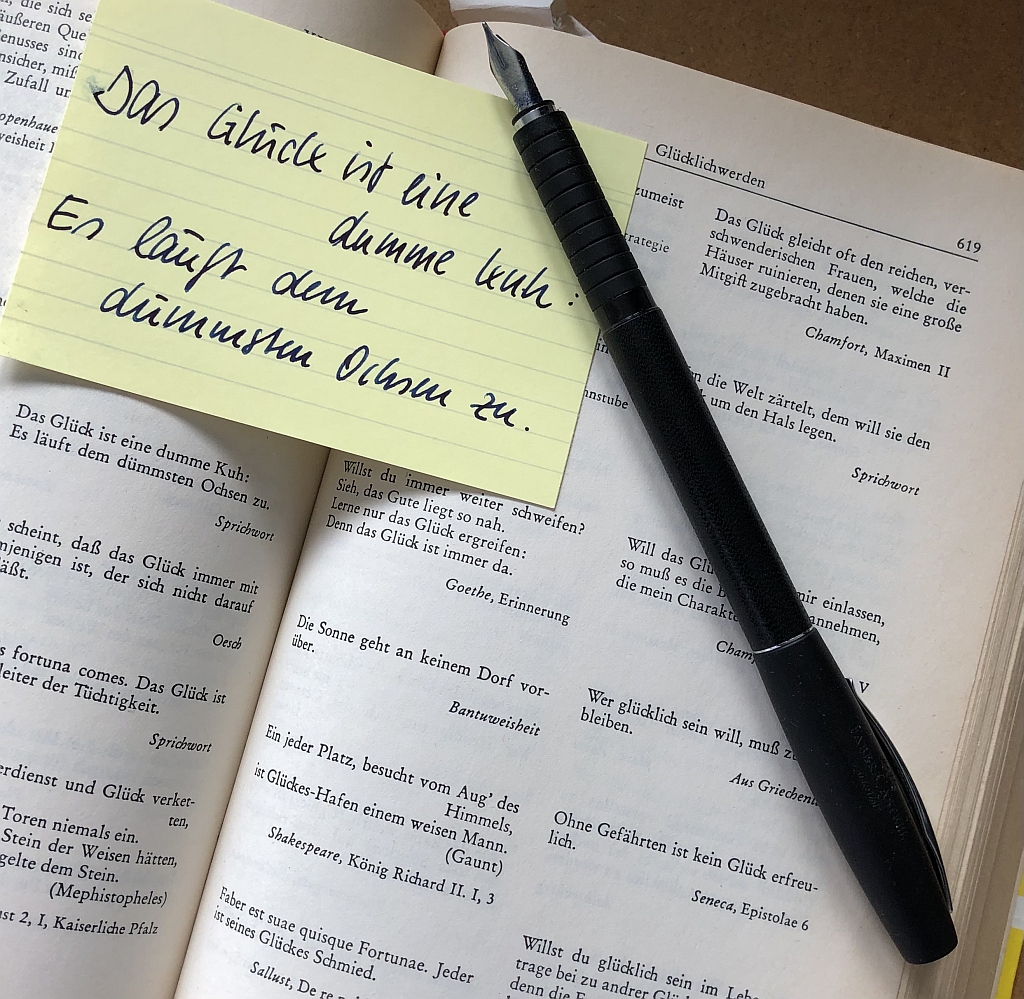 , die sich se
äußeren Que
enusses sind
nsicher, miß
Zufall ur
openhaue
weisheit
Das Glück ist eine
dumme Kuh:
Es läuft dem
dümmsten Ochsen zu.
Das Glück ist eine dumme Kuh:
Es läuft dem dümmsten Ochsen zu.
Sprichwort
scheint, daß das Glück immer mit
mjenigen ist, der sich nicht darauf
äßt.
Oesch
s fortuna comes. Das Glück ist
leiter der Tüchtigkeit.
Sprichwort
erdienst und Glück verket-
ten,
Toren niemals ein.
Stein der Weisen hätten,
gelte dem Stein.
(Mephistopheles)
ust 2, I, Kaiserliche Pfalz
Glücklichwerden
619
zumeist
rategie
nnstube
Willst du immer weiter schweifen?
Sieh, das Gute liegt so nah.
Lerne nur das Glück ergreifen:
Denn das Glück ist immer da.
Goethe, Erinnerung
Die Sonne geht an keinem Dorf vor-
über.
Bantuweisheit
Ein jeder Platz, besucht vom Aug' des
Himmels,
ist Glückes-Hafen einem weisen Mann.
(Gaunt)
Shakespeare, König Richard II. I, 3
Faber est suae quisque Fortunae. Jeder
ist seines Glückes Schmied.
Sallust, De re
Das Glück gleicht oft den reichen, ver-
schwenderischen Frauen, welche die
Häuser ruinieren, denen sie eine große
Mitgift zugebracht haben.
Chamfort, Maximen II
n die Welt zärtelt, dem will sie den
um den Hals legen.
Sprichwort
Will das Glü mir einlassen,
so muß es die B annehmen,
die mein Charakte
Cham V
Wer glücklich sein will, muß z
bleiben.
Aus Griechenl
Ohne Gefährten ist kein Glück erfreu-
lich.
Seneca, Epistolae 6
Willst du glücklich sein im Lebe
trage bei zu andrer Glü
denn die F